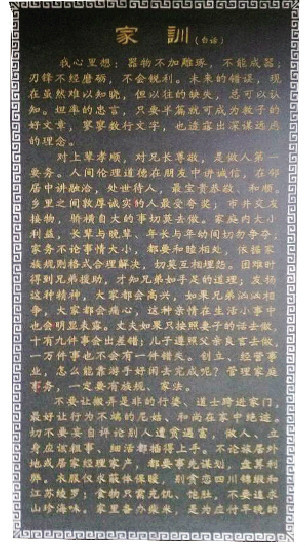 家训（白话）
我心里想：器物不加雕琢，不能成器；
刃锋不经磨砺，不会锐利。未来的错误，现
在虽然难以知晓，但以往的缺失，总可以认
知。坦率的忠言，只要半篇就可成为教子的
好文章，寥寥数行文字，也透露出深谋远虑
的理念。
对上辈孝顺，对兄长尊敬，是做人第一
要务。人间伦理道德在朋友中讲诚信，在邻
居中讲融洽，处世待人，最宝贵恭敬、和顺，
乡里之间敦厚诚实的人最受夸奖；市井交友
接物，骄横自大的事切莫去做。家庭内大小
利益，长辈与晚辈、年长与年幼间切勿争夺，
家务不论事情大小，都要和睦相处，依据家
族规则格式合理解决，切莫互相埋怨。困难时
得到兄弟援助，才知兄弟如手足的道理；发扬
这种精神，大家都会高兴，如果兄弟汹汹相
争，大家都会痛心，这种亲情在生活小事中
也会明显表露。丈夫如果只按照妻子的话去做，
十有九件事会出差错；儿子遵照父亲良言去做，
一万件事也不会有一件错失。创立、经营事
业，怎么能靠游手好闲去完成呢？管理家庭
事务，一定要有族规、家法。
不要让搬弄是非的行婆、道士跨近家门，
最好让行为不端的尼姑、和尚在家中绝迹。
切不要妄自评论别人遭贫遇富，做人、立
身应该粗事、细活都插得上手。不论族居外
地或居家经理家产，都要事先谋划、盘算利
弊。衣服仅求蔽体保暖，别贪恋四川锦缎和
江苏绫罗；食物只需充饥、饱肚，不要追求
山珍海味，家里备办粮米，是为应付早晚的